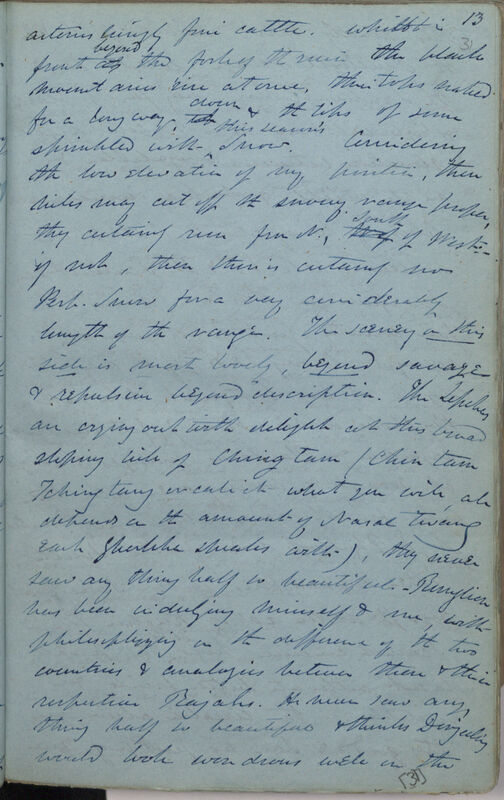 13
31
fine cattle. Whilst in
front beyond the fork of the river the black
mountains rise at once, their tops naked
for a long way down & the tips of some
sprinkled with this seasons Snow. Considering
the low elevation of my position, these
hills may cut off the snowy range proper,
they certainly run from N., South of West-
if not, then there is certainly no
Perp. Snow for a very considerable
length of the range. The scenery on this
side is most lovely, beyond savage
& repulsive beyond description. The Lepchas
are crying out with delight at this broad
sloping side of Chingtam (Chintam
Tchingtang or call it what you will, all
depends on the amount of Nasal Twang
each Ghorkha speaks with), they never
saw any thing half so beautiful -
has been indulging himself & me, with
philosophizing on the difference of the two
countries & analogies between them & their
respective Rajahs. He never saw any
thing half so beautiful & thinks Dorjeeling
would look wondrous well on the
[31]